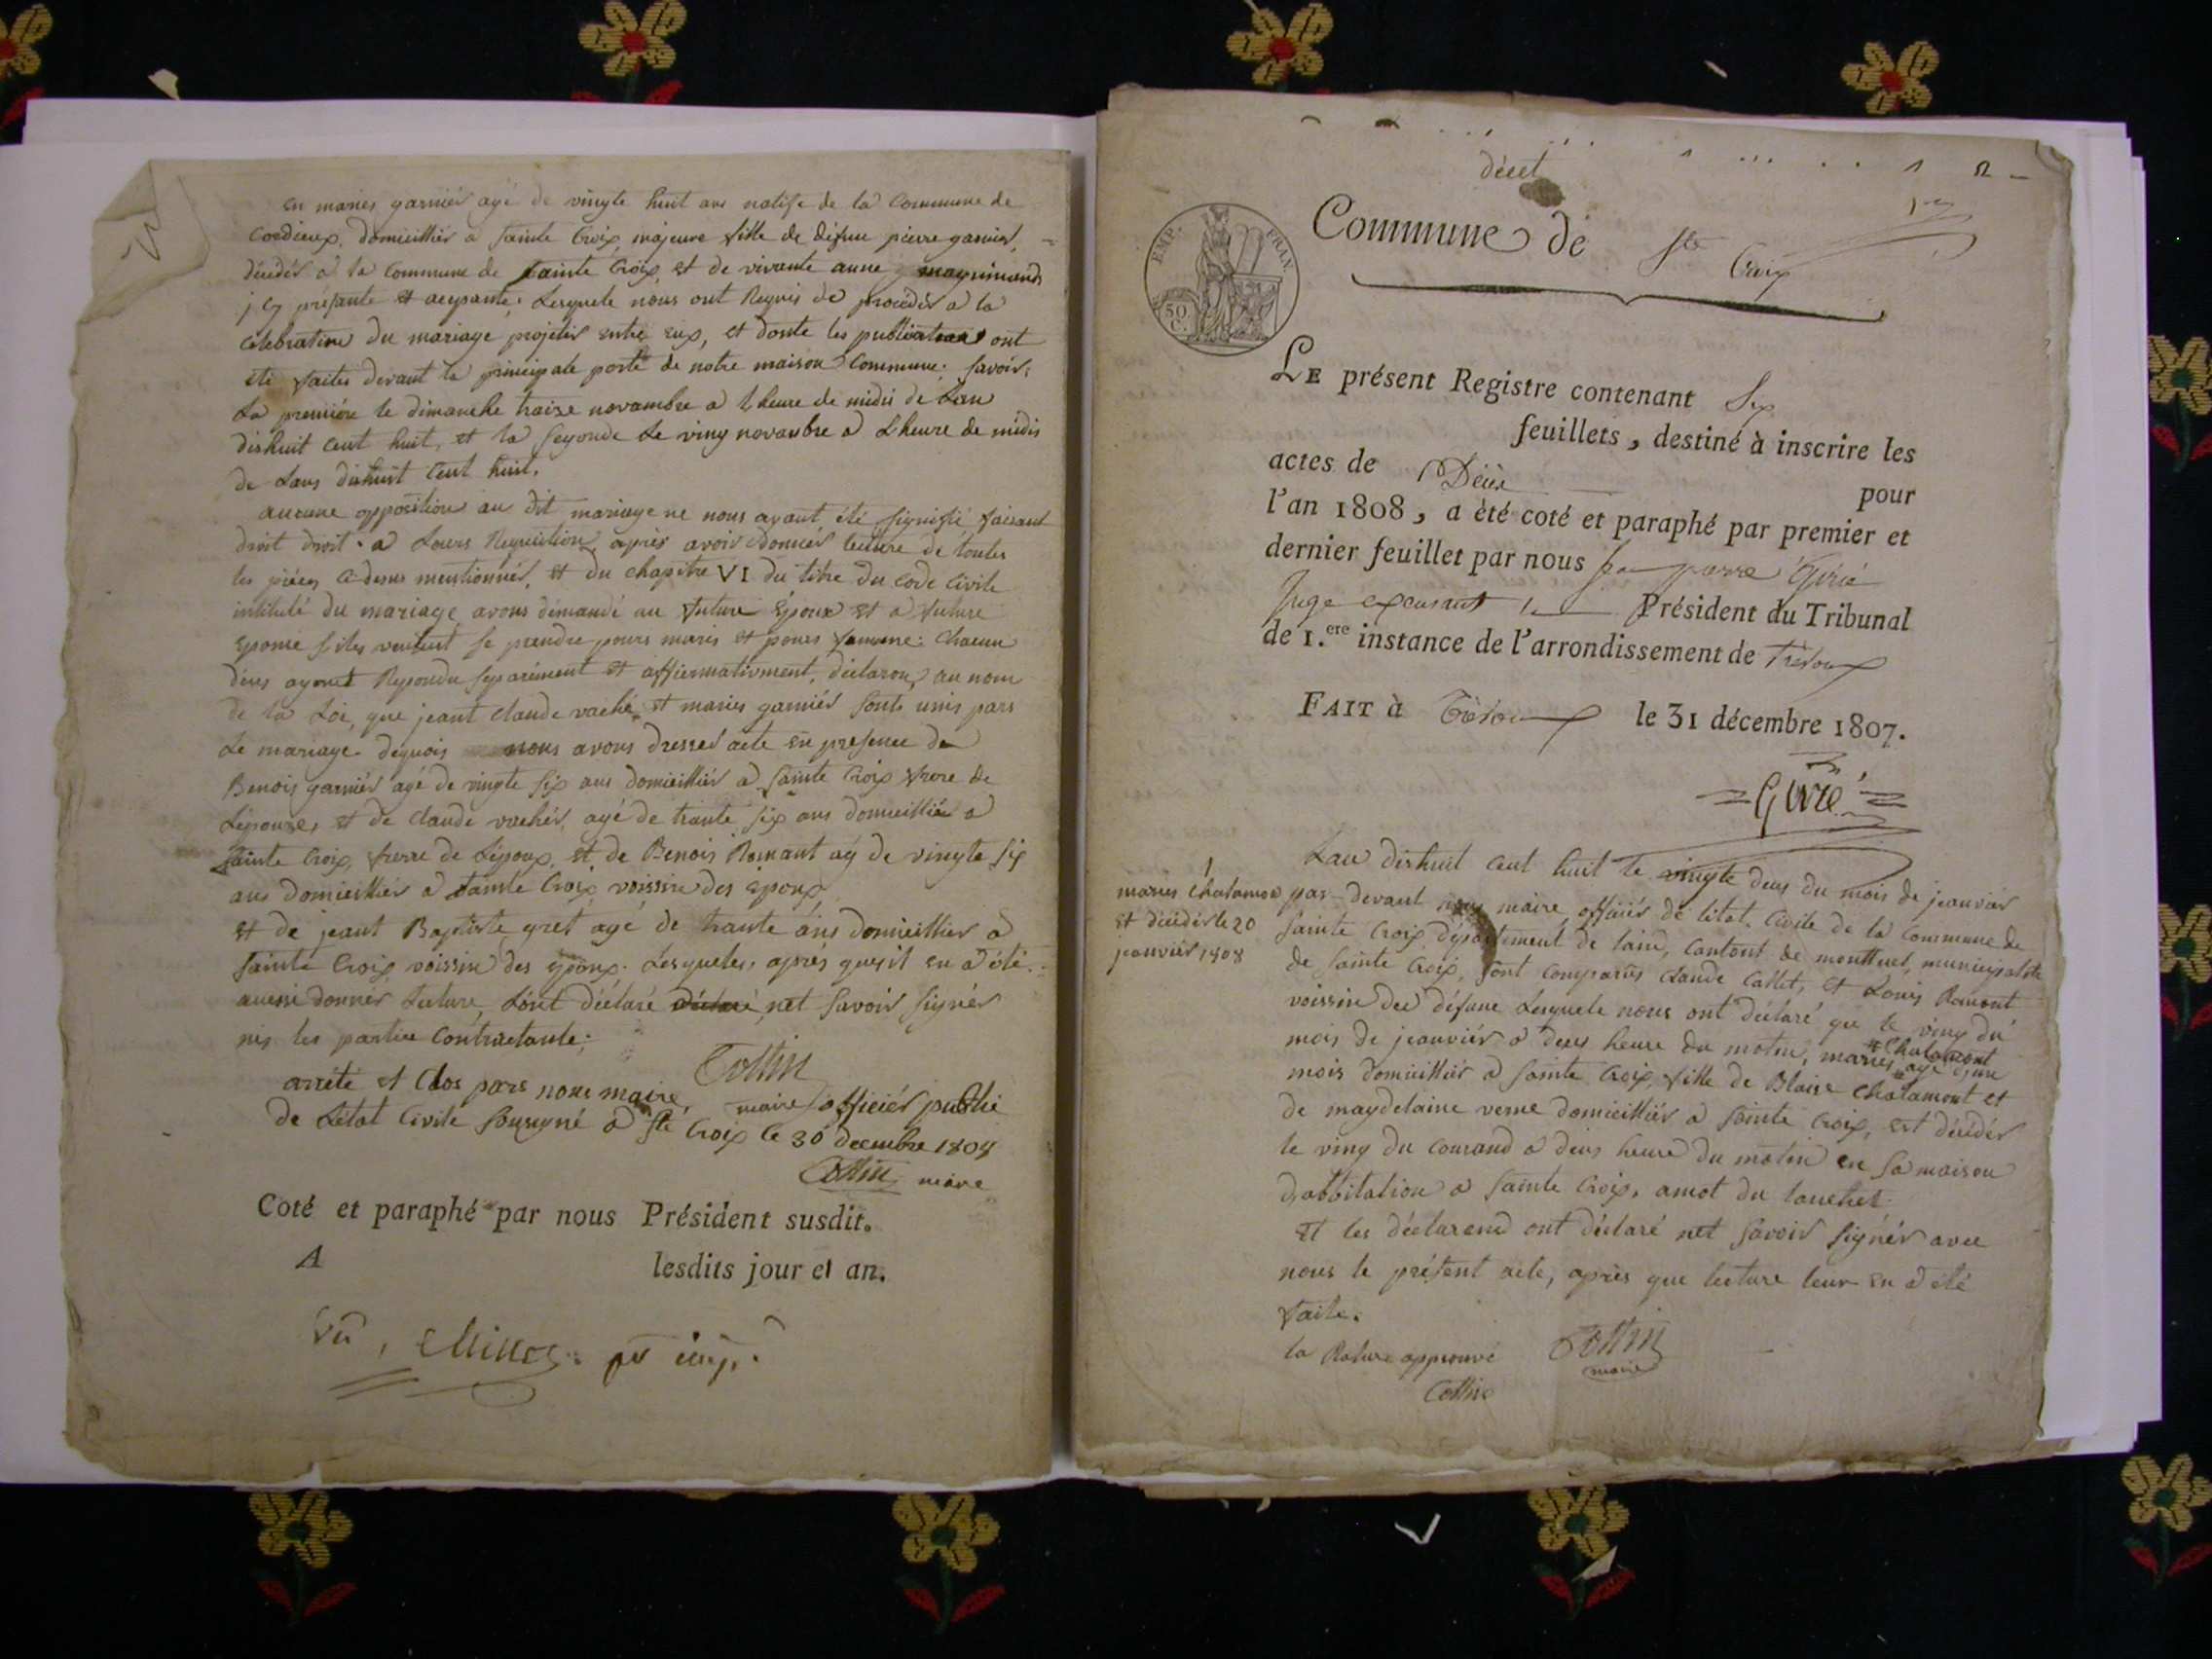 en maries garniér agé de vingte huit ans natife de la Commune de
Cordieux, domicilliér a sainte Croix, majeure fille de défunt pierre garnier,
décédér a la Commune de sainte Croix, et de vivante anne
présante et
lesquele nous ont Requis de procédér a la
célébration du mariage projetér entre eux, et donte les publications ont
été faites devant la principale porte de notre maison Commune; savoir;
La première le dimanche traize novambre a l heure de midis de Lan
dishuit cent huit, et la segonde Le ving novambre a L heure de midis
de Lans dishuit Cent huit.
aucune opposition au dit mariage ne nous ayant été signifié faisant
droit droit a Leurs Requisition, après avoir donnér lecture de toutes
les pièces Cidesus mentionnés, et du chapitre VI du titre du Code Civile
intitulé du mariage, avons démandé au future Époux et a future
Epouse siles veulent se prendre pours maris et pours famme: Chacun
deus ayant Repondu séparément et affiermativment, déclarons au nom
de la Loi, que jeant Claude vaché, et maries garniér sont unis pars
Le mariage. dequois nous avons dresser acte en presence de
Benois garniér agé de vingte six ans domicilliér a sainte Croix frere de
Lépouze, et de Claude vachér, agé de trante six ans domicilliér a
sainte Croix, frerre de Lépoux, et de Benois Romant ag de vingte six
ans domicilliér a sainte Croix voissin des époux
et de jeant Baptiste gret agé de trante ans domicillier a
sainte Croix voissin des époux. Lesqueles, après ques il en a été
aussi donnér Lecture, Lont déclaré déclaré net savoir signér
nis les partie Contractante;
Cottin
arrété et Clos pars nous maire, maire officiér publie
de Létat Civile soussigné a Ste Croix le 30 decembre 1808
Cottin maire
Coté et paraphé par nous Président susdit.
A lesdits jour et an.
Vu,
décet
Commune de Ste Croix
1er
EMP. FRAN.
50 C.
LE présent Registre contenant Six
feuillets, destiné à inscrire les
actes de Décès pour
l'an 1808, a été coté et paraphé par premier et
dernier feuillet par nous
Juge Président du Tribunal
de 1.ere instance de l'arrondissement de Trévoux
FAIT à Trévoux le 31 décembre 1807.
maries Chalamon
et décédér le 20
janviér 1808
Lan dishuit Cent huit le vingte deus du mois de jeanviér
par-devant nous maire, officiér de létat Civile de la Commune de
sainte Croix département de lain, Cantont de montluel, municipalité
de sainte Croix, sont Comparus Claude Collet, et Louis Romant
voissin du défunt Lesquele nous ont déclaré que le ving du
mois de jeanviér a deus heure du matin, maries Chalamont agé d'une
mois domicilliér a sainte Croix fille de Blaise Chalamont et
de magdelaine verne domicilliér a sainte Croix, est décédér
le ving du Courand a deus heure du matin en sa maison
d,abbitation a sainte Croix, amot du
et les déclarend ont déclaré net savoir signér avec
nous le présent acte, après que lecture leur en a été
faite.
la Rature approuvé Cottin
maire
Cottin